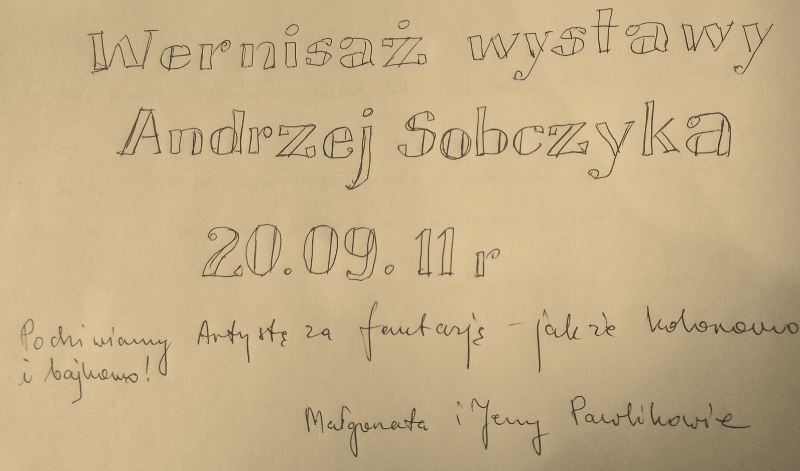 Wernisaż wystawy
Andrzej Sobczyka
20.09.11 r
Podziwiamy Artystę za fantazję – jakże kolorowo
i bajkowo!
Małgorzata i Jerzy Pawlikowie